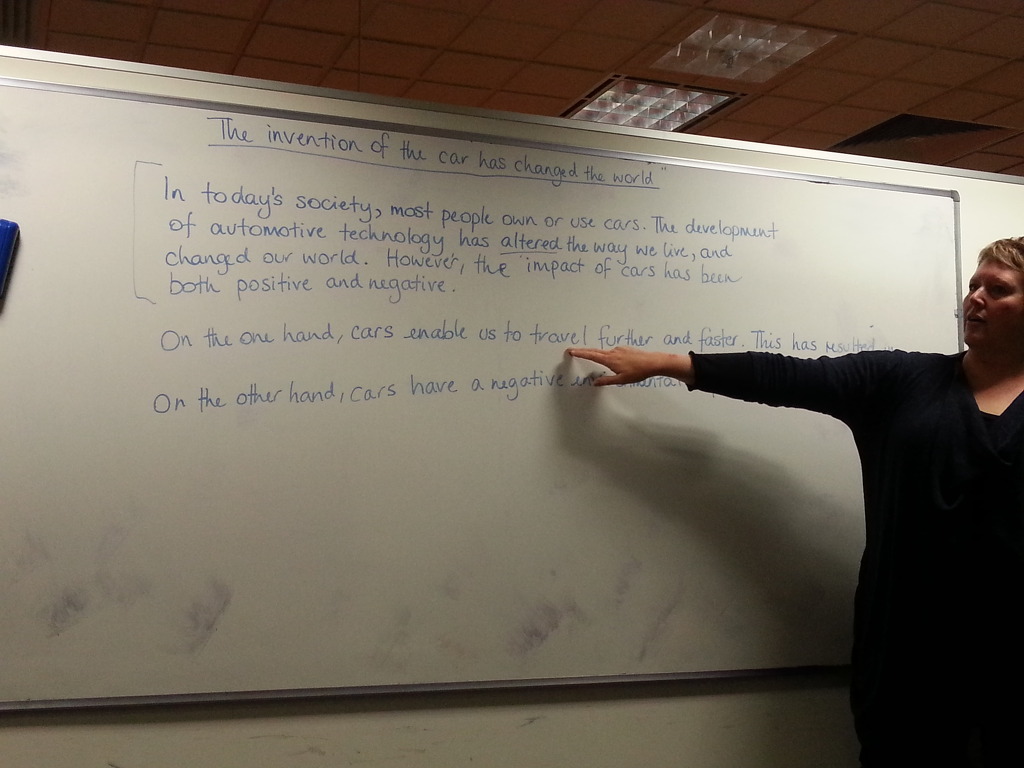 The invention of the car has changed the world"
In today's society, most people own or use cars. The development
of automotive technology has altered the way we live, and
changed our world. However, the impact of cars has been
both positive and negative.
On the one hand, cars enable us to travel further and faster. This has resulted
On the other hand, cars have a negative